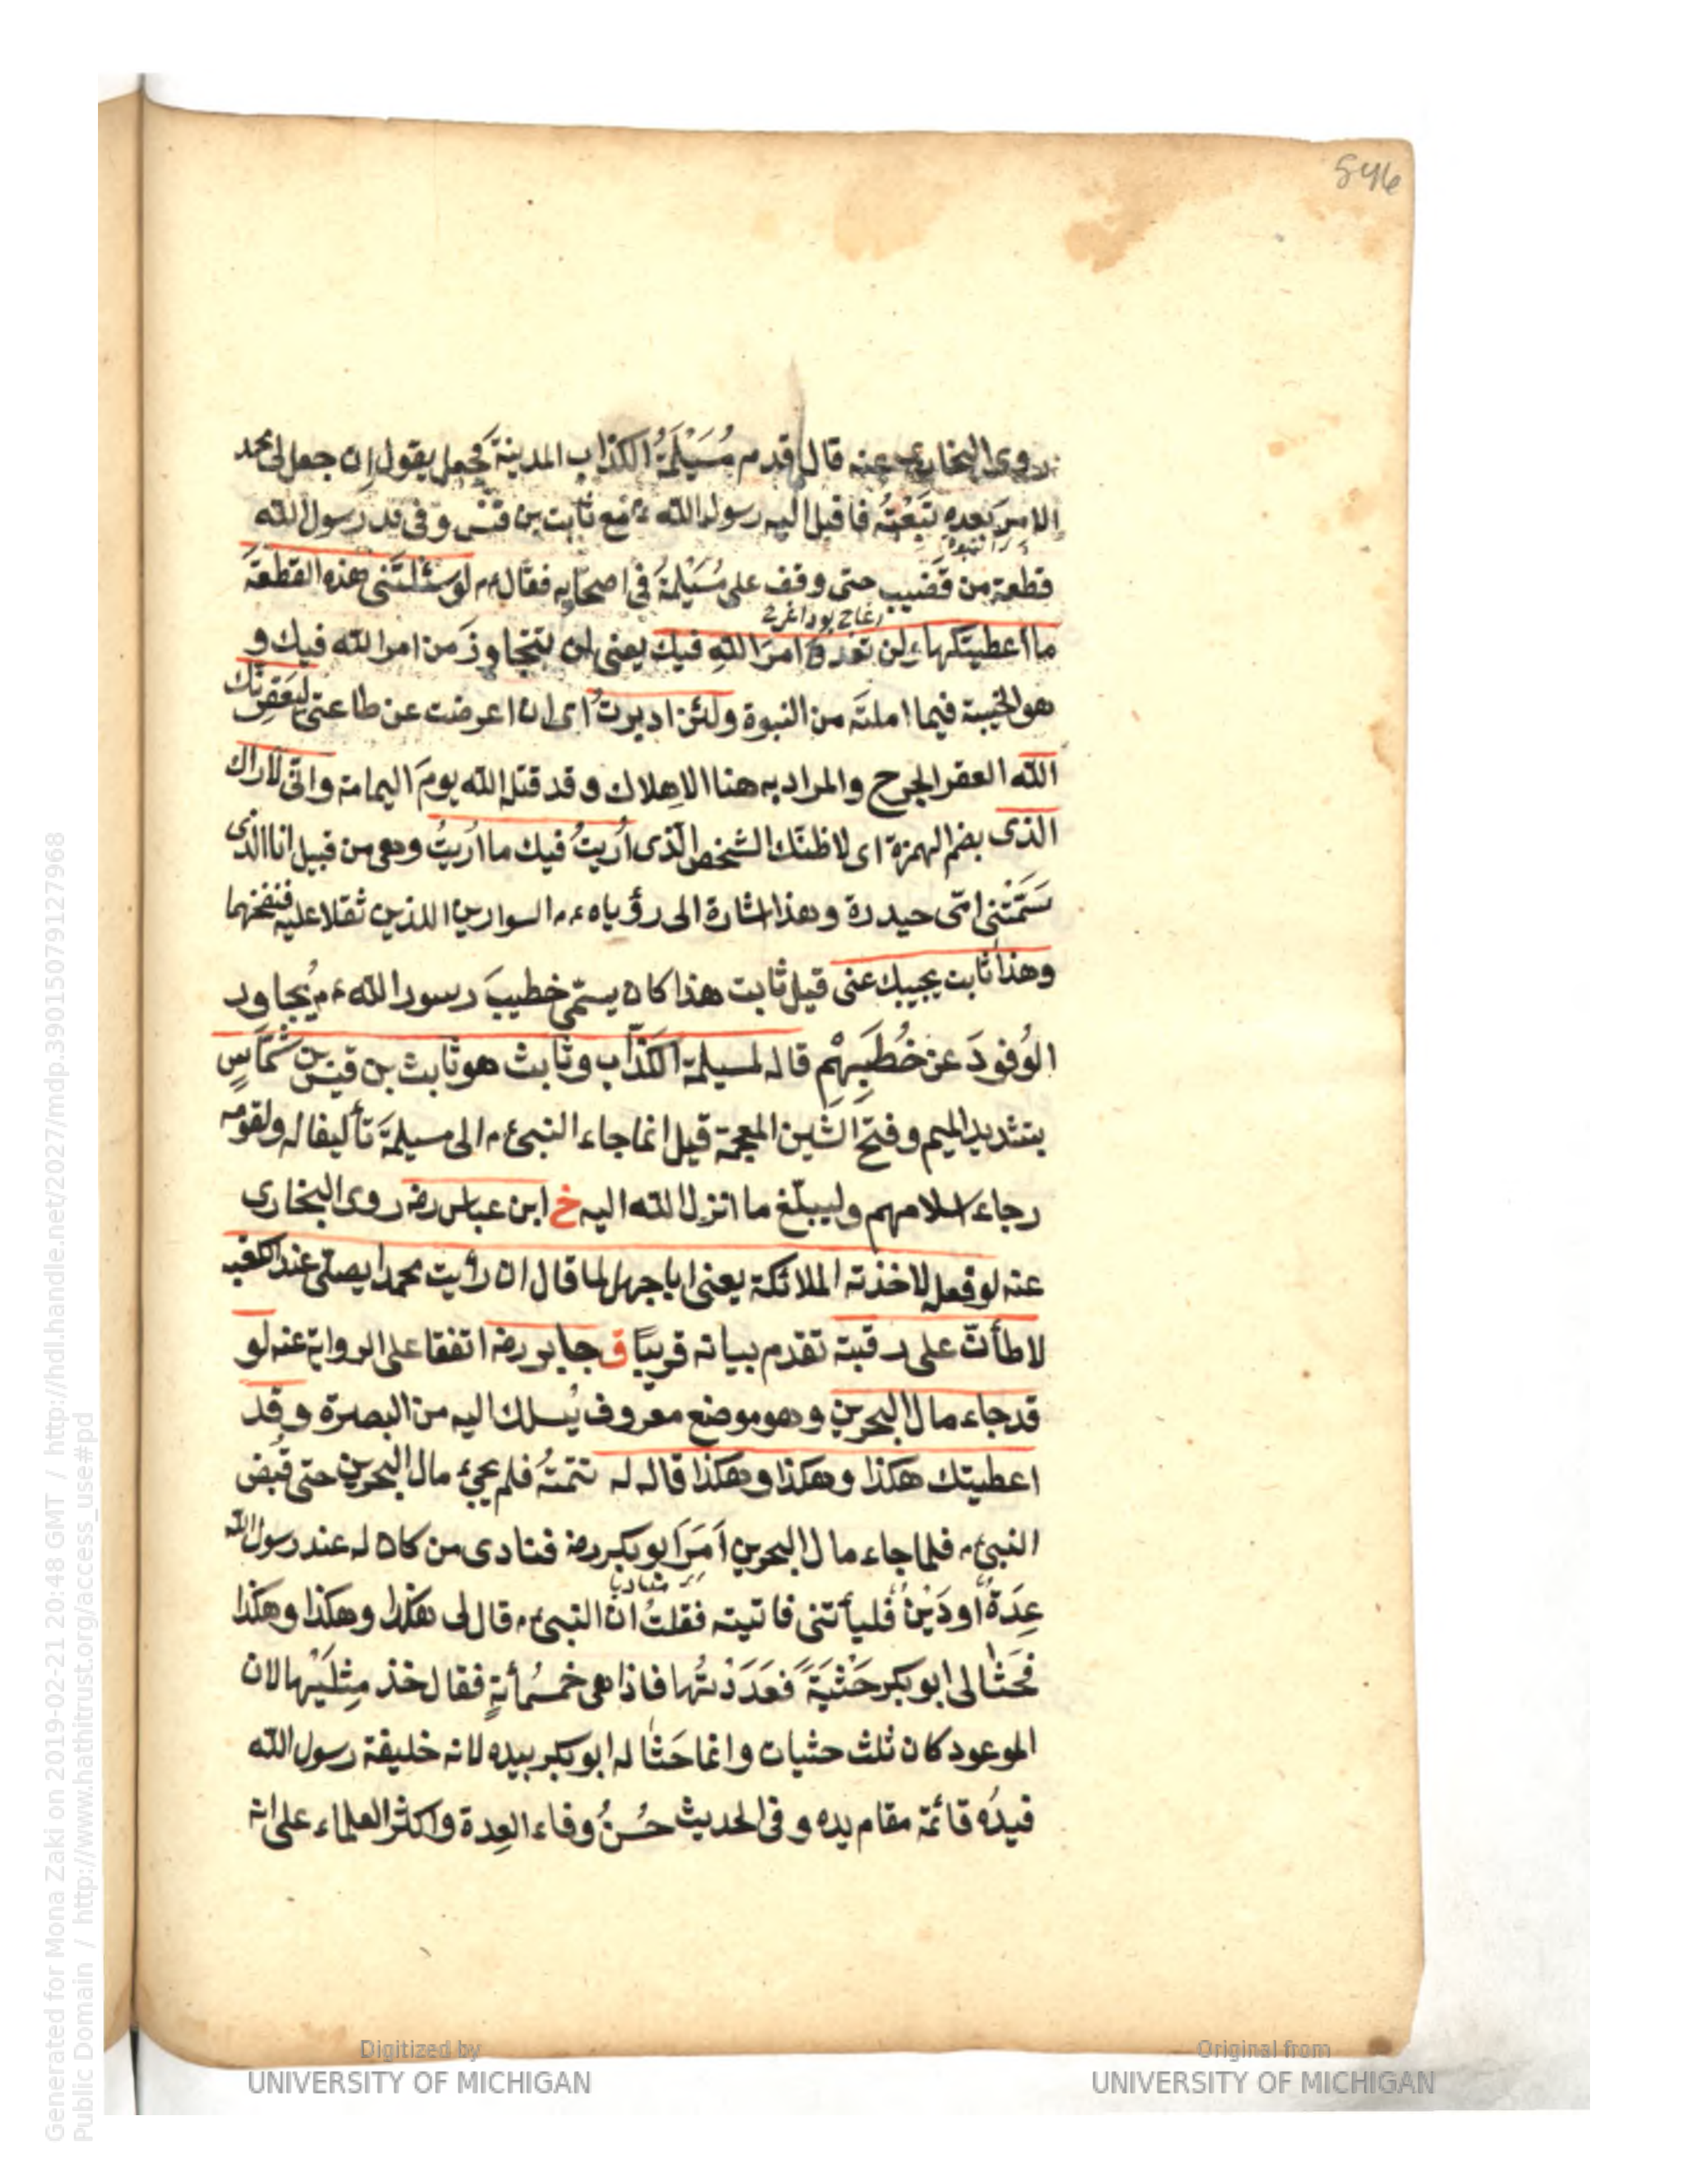 546
روى البخارى عنه قال قدم مُسَيْلَمَةُ الكذّاب المدينة فجعل يقول إن جعل لى محمد
الامرَ بعده تَبِعْتُهُ فاقبل اليه رسول الله ءم مع ثابت بن قيس وفى يد رسول الله
قطعة من قَضيب حتى وقف على مُسَيْلَمَةُ فى اصحابه فقال ءم لو سئلتَنى هذه القطعةَ
ما اعطيتكها ولن تعدوَ امرَ اللهِ فيك يعنى لن تتجاوزَ من امر الله فيك و
هو الخيبة فيما املتَه من النبوة ولئن ادبرتَ اى ان اعرضت عن طاعتى ليَعقِرنّك
الله العقر الجرح والمراد به هنا الاهلاك وقد قتله الله يومَ اليمامة وانّى لاُراك
الذى بضم الهمزة اى لاظنّك الشخص الّذى اُريتُ فيك ما اُريتُ وهو من قبيل انا الذى
سَمَّتْنى امّى حيدرة وهذا اشارة الى رؤياه ءم السوارين اللذين ثقلا عليه فنفخهما
وهذا ثابت يجيبك عنى قيل ثابت هذا كان يسمّى خطيبَ رسول الله ءم يُجاوِد
الوُفودَ عن خُطَبِهِمْ قاله لمسيلمة الكذّاب وثابث هو ثابث بن قيس بن شمّاسٍ
بتشديد الميم وفتح الشين المعجمة قيل انما جاء النبى ءم الى مسيلمةَ تأليفا له ولقومه
رجاء اسلامهم وليبلّغ ما انزل الله اليه خ ابن عباس رضه روى البخارى
عنه لو فعل لاخذته الملائكة يعنى ابا جهل لما قال ان رأيت محمدا يصلّى عند الكعبه
لاطأنّ على رقبته تقدم بيانه قريبًا ق جابر رضه اتفقا على الرواية عنه لو
قد جاء مال البحرين وهو موضع معروف يُسلك اليه من البصرة وقد
اعطيتك هكذا وهكذا وهكذا قاله له تتمتُه فلم يجئ مال البحرين حتى قُبض
النبى ءم فلما جاء مال البحرين اَمَرَ ابو بكر رضه فنادى من كان له عند رسول الله
مناديا
عِدَةٌ او دَيْنٌ فليأتنى فاتيته فقلتُ انّ النبى ءم قال لى هكذا وهكذا وهكذا
فحَثٰا لى ابو بكر حَثْيَةً فعَدَدْتُها فاذا هى خمسُمأئةٍ فقال خذ مِثلَيْها لان
الموعود كان ثلث حثيات وانما حَثٰا له ابو بكر بيده لانه خليفة رسول الله
فيدُه قائمة مقام يده وفى الحديث حُسْنُ وفاء العِدة واكثر العلماء على انه
Digitized by
UNIVERSITY OF MICHIGAN
Original from
UNIVERSITY OF MICHIGAN
Generated for Mona Zaki on 2019-02-21 20:48 GMT / http://hdl.handle.net/2027/mdp.39015079127968
Public Domain / http://www.hathitrust.org/access_use#pd